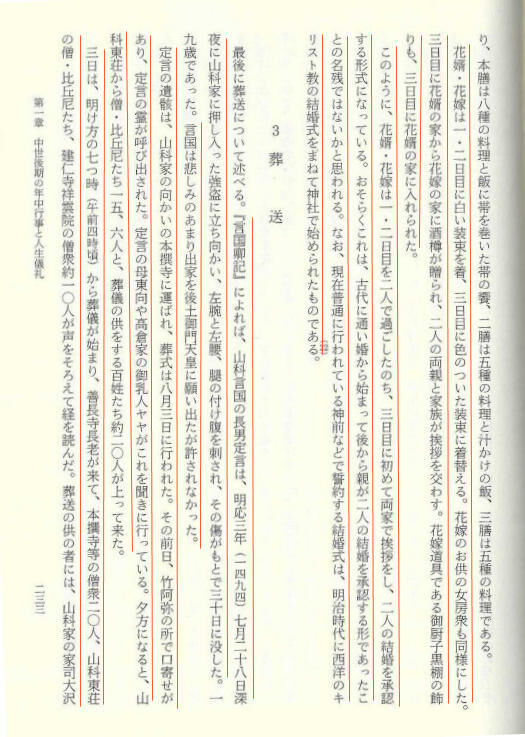 り、本膳は八種の料理と飯に帯を巻いた帯の饗、二膳は五種の料理と汁かけの飯、三膳は五種の料理である。
花婿・花嫁は一・二日目に白い装束を着、三日目に色のついた装束に着替える。花嫁のお供の女房衆も同様にした。
三日目に花婿の家から花嫁の家に酒樽が贈られ、二人の両親と家族が挨拶を交わす。花嫁道具である御厨子黒棚の飾
りも、三日目に花婿の家に入れられた。
このように、花婿・花嫁は一・二日目を二人で過ごしたのち、三日目に初めて両家で挨拶をし、二人の結婚を承認
する形式になっている。おそらくこれは、古代に通い婚から始まって後から親が二人の結婚を承認する形であったこ
との名残ではないかと思われる。なお、現在普通に行われている神前などで誓約する結婚式は、明治時代に西洋のキ
リスト教の結婚式をまねて神社で始められたものである。
3 葬送
最後に葬送について述べる。『言国卿記』によれば、山科言国の長男定言は、明応三年(一四九四)七月二十八日深
夜に山科家に押し入った強盗に立ち向かい、左腕と左腰、腿の付け腹を刺され、その傷がもとで三十日に没した。一
九歳であった。言国は悲しみのあまり出家を後土御門天皇に願い出たが許されなかった。
定言の遺骸は、山科家の向かいの本撰寺に運ばれ、葬式は八月三日に行われた。その前日、竹阿弥の所で口寄せが
あり、定言の霊が呼び出された。定言の母東向や高倉家の御乳人ヤヤがこれを聞きに行っている。夕方になると、山
科東荘から僧・比丘尼たち一五、六人と、葬儀の供をする百姓たち約二〇人が上って来た。
三日は、明け方の七つ時(午前四時頃)から葬儀が始まり、善長寺長老が来て、本撰寺等の僧衆二〇人、山科東荘
の僧・比丘尼たち、建仁寺祥雲院の僧衆約一〇人が声をそろえて経を読んだ。葬送の供の者には、山科家の家司大沢
第一章 中世後期の年中行事と人生儀礼
二三三